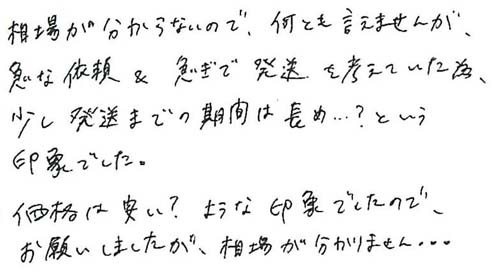 相場が分からないので、何とも言えませんが、
急な依頼 & 急ぎで 発送 を考えていた為、
少し 発送までの期間は長め…？という
印象でした。
価格は安い？ ような印象でしたので、
お願いしましたが、相場が分かりません…